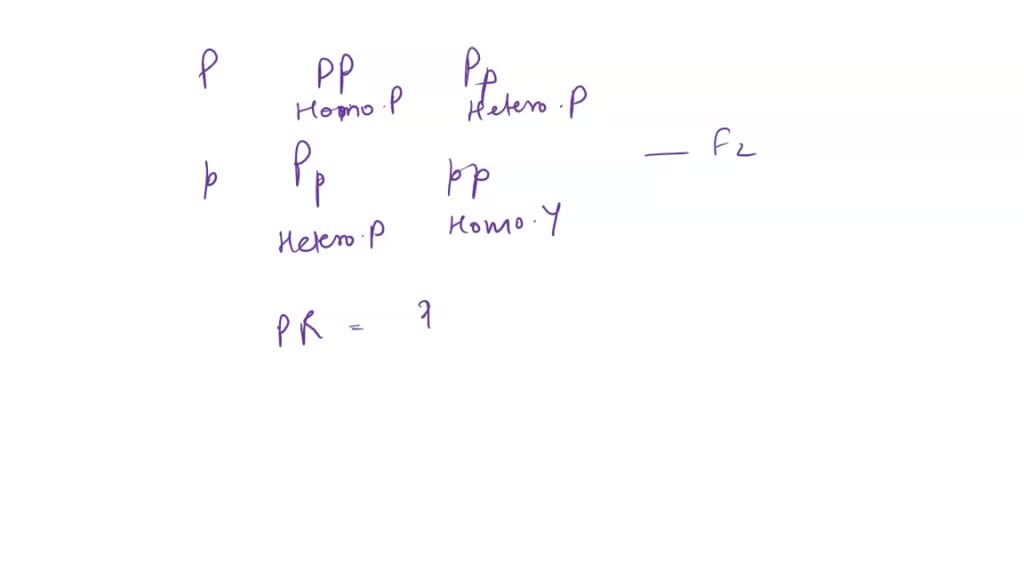 P PP Pp
Homo.P Hetero.P
— F2
p Pp pp
Hetero.P Homo.Y
PR = ?